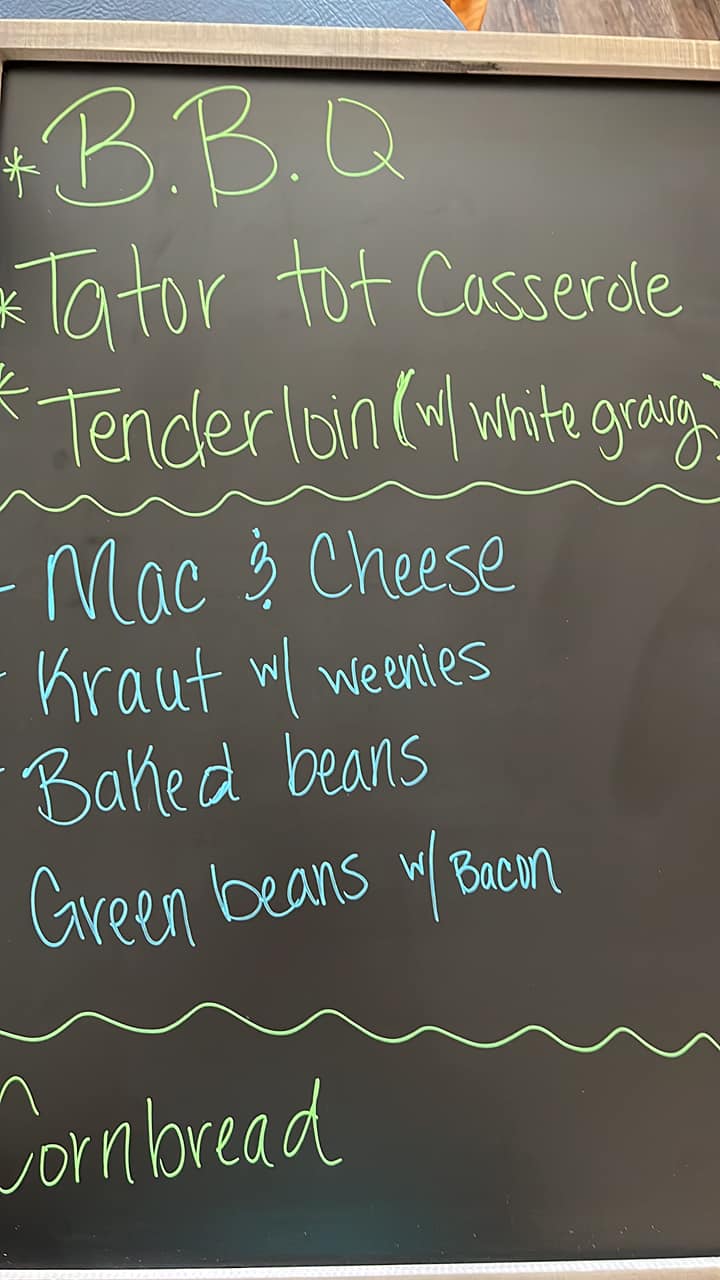 * B.B.Q
* Tator tot Casserole
* Tenderloin (w/ white gravy)
- Mac & Cheese
- Kraut w/ weenies
- Baked beans
Green beans w/ Bacon
Cornbread